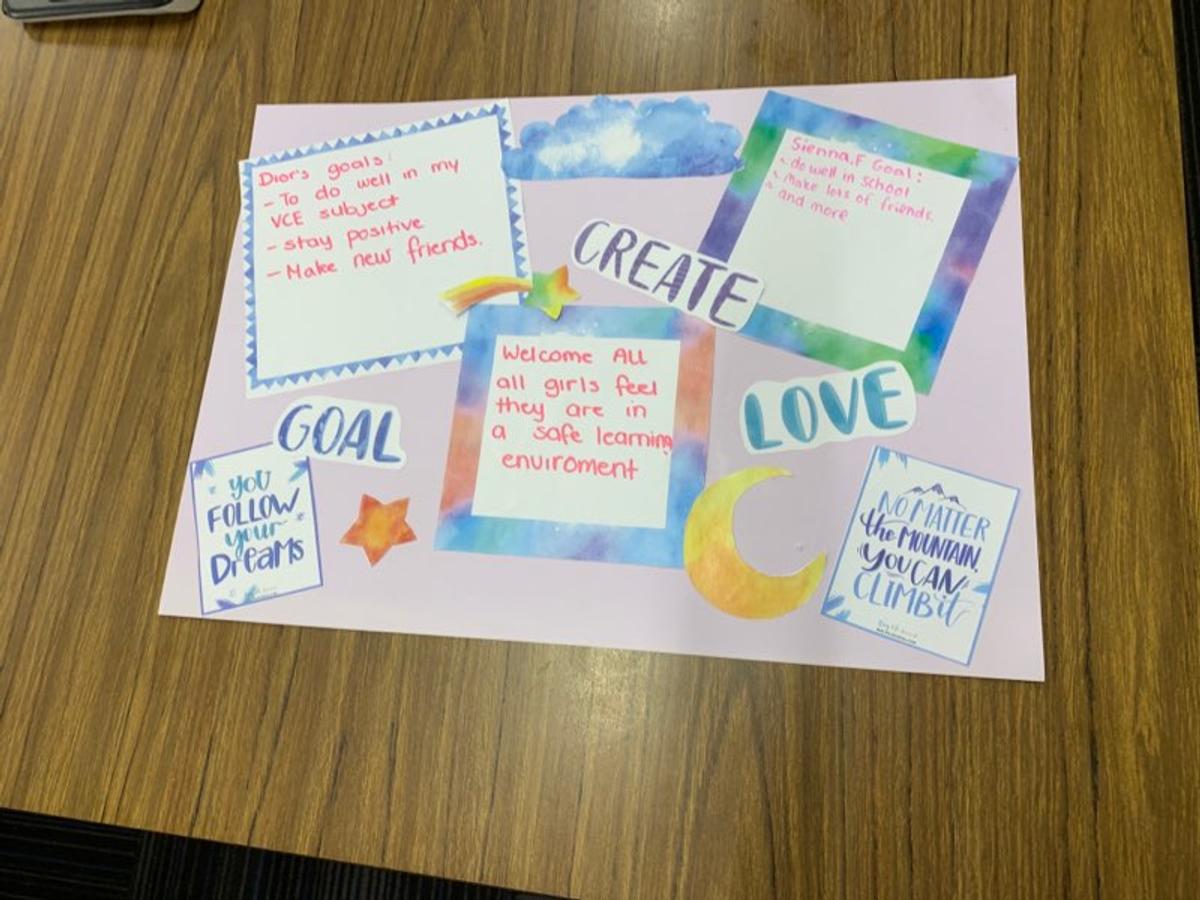 Dior's goals:
- To do well in my
VCE subject
- stay positive
- Make new friends.
Sienna.F Goal:
- do well in school
- Make lots of friends.
- and more
CREATE
Welcome All
all girls feel
they are in
a safe learning
enviroment
GOAL
LOVE
you
FOLLOW
your
Dreams
NO MATTER
the MOUNTAIN,
YOU CAN
CLIMB it